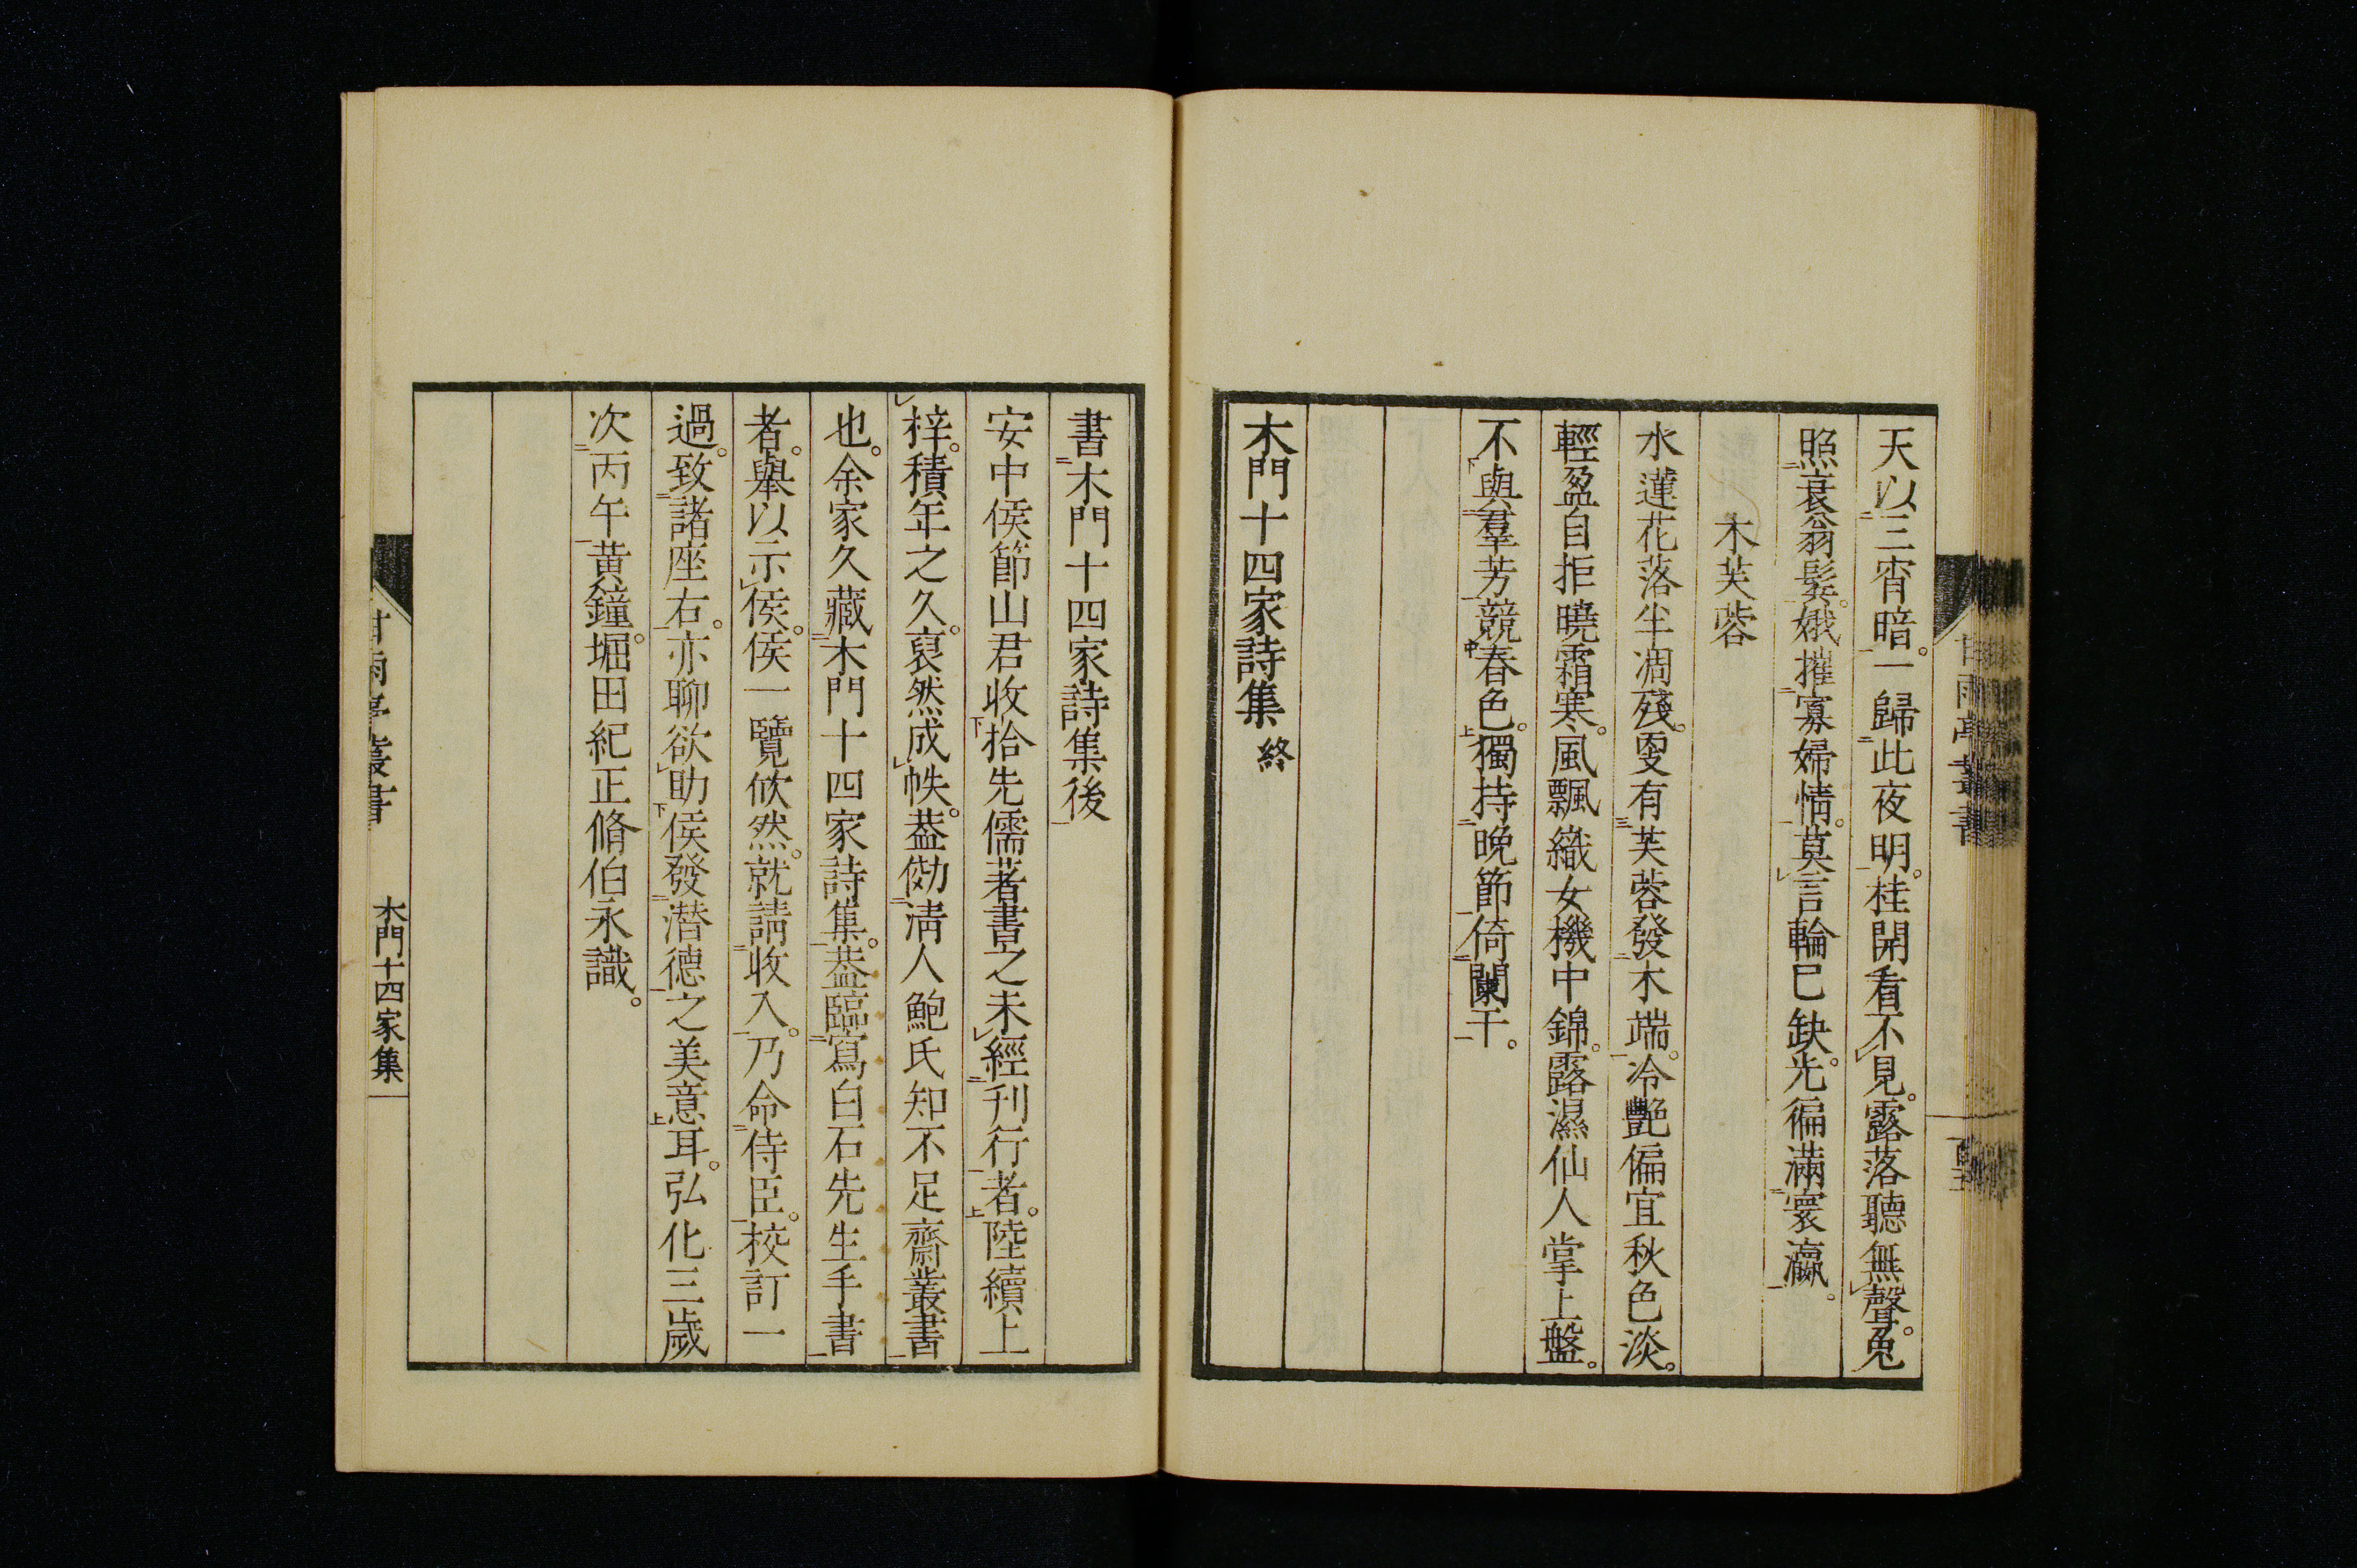 天以三宵暗。一歸此夜明。桂開看不見。露落聽無聲。兔
照衰翁髮。娥摧寡婦情。莫言輪已缺。光徧滿寰瀛。
木芙蓉
水蓮花落半凋殘。更有芙蓉發木端。冷艷偏宜秋色淡。
輕盈自拒曉霜寒。風飄織女機中錦。露濕仙人掌上盤。
不與羣芳競春色。獨持晚節倚闌干。
木門十四家詩集 終
甘雨亭叢書
書木門十四家詩集後
安中侯節山君收拾先儒著書之未經刊行者。陸續上
梓。積年之久。裒然成帙。葢傚淸人鮑氏知不足齋叢書
也。余家久藏木門十四家詩集。葢臨寫白石先生手書
者。擧以示侯。侯一覽欣然。就請收入。乃命侍臣。校訂一
過。致諸座右。亦聊欲助侯發潜德之美意耳。弘化三歲
次丙午黃鐘。堀田紀正脩伯永識。
甘雨亭叢書 木門十四家集